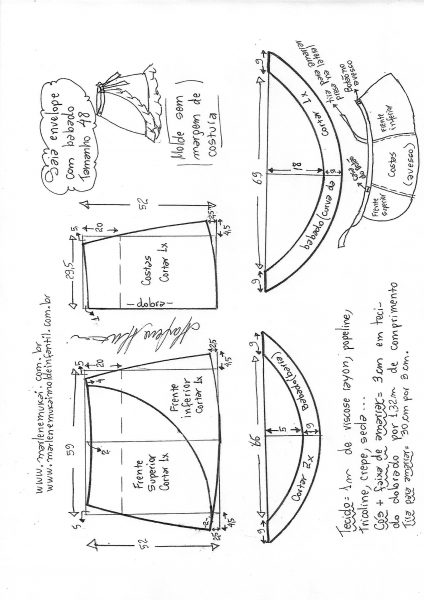 Saia envelope
com babado
Tamanho 48
Molde sem
margem de
costura
www.marlenemukai.com.br
www.marlenemukaimoldeinfantil.com.br
59
5
20
4
2
Frente
Superior
Cortar 1x
Frente
inferior
Cortar 1x
52
2
25
4,5
25
4,5
29,5
5
20
1
Costas
Cortar 1x
dobra
52
25
4,5
Marlene Mukai
66
9
9
5
5
Babado (barra)
Cortar 2x
69
9
9
18
5
babado (curva da
cortar 1x
tira para amarrar
passa na
lateral
Babado
avesso
Frente
inferior
Costas
(avesso)
Frente
superior
Tecido = 1m de viscose rayon, popeline,
Tricoline, crepe, seda...
Cós + faixa de amarrar = 3cm em teci-
do dobrado por 1,32m de comprimento
Tira para amarrar = 30cm por 3cm.